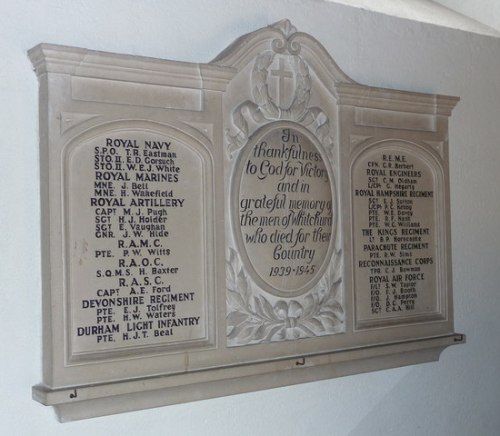 ROYAL NAVY
S.P.O. T.R. Eastman
STO. II. E.D. Gorsuch
STO. II. W.E.J. White
ROYAL MARINES
MNE. J. Bell
MNE. H. Wakefield
ROYAL ARTILLERY
CAPT M.J. Pugh
SGT H.J. Holder
SGT E. Vaughan
GNR. J.W. Hide
R.A.M.C.
PTE. P.W. Witts
R.A.O.C.
S.Q.M.S. H. Baxter
R.A.S.C.
CAPT A.E. Ford
DEVONSHIRE REGIMENT
PTE. E.J. Tolfrey
PTE. H.W. Waters
DURHAM LIGHT INFANTRY
PTE. H.J.T. Beal
In
thankfulness
to God for Victory
and in
grateful memory of
the men of Whitchurch
who died for their
Country
1939-1945
R.E.M.E.
CFN. G.R. Herbert
ROYAL ENGINEERS
SGT C.M. Oldham
L/CPL G. Hegarty
ROYAL HAMPSHIRE REGIMENT
SGT E.J. Sutton
L/CPL P.C. Kenny
PTE. W.E. Dandy
PTE. R.F. Nutt
PTE. W.C. Williams
THE KINGS REGIMENT
LT B.P. Norncastle
PARACHUTE REGIMENT
PTE. R.W. Sims
RECONNAISSANCE CORPS
TPR. C.J. Bowman
ROYAL AIR FORCE
F/LT S.W. Taylor
F/O. E.J. Booth
F/O. J. Hampton
F/O. D.C. Perry
SGT C.A.A. Hill